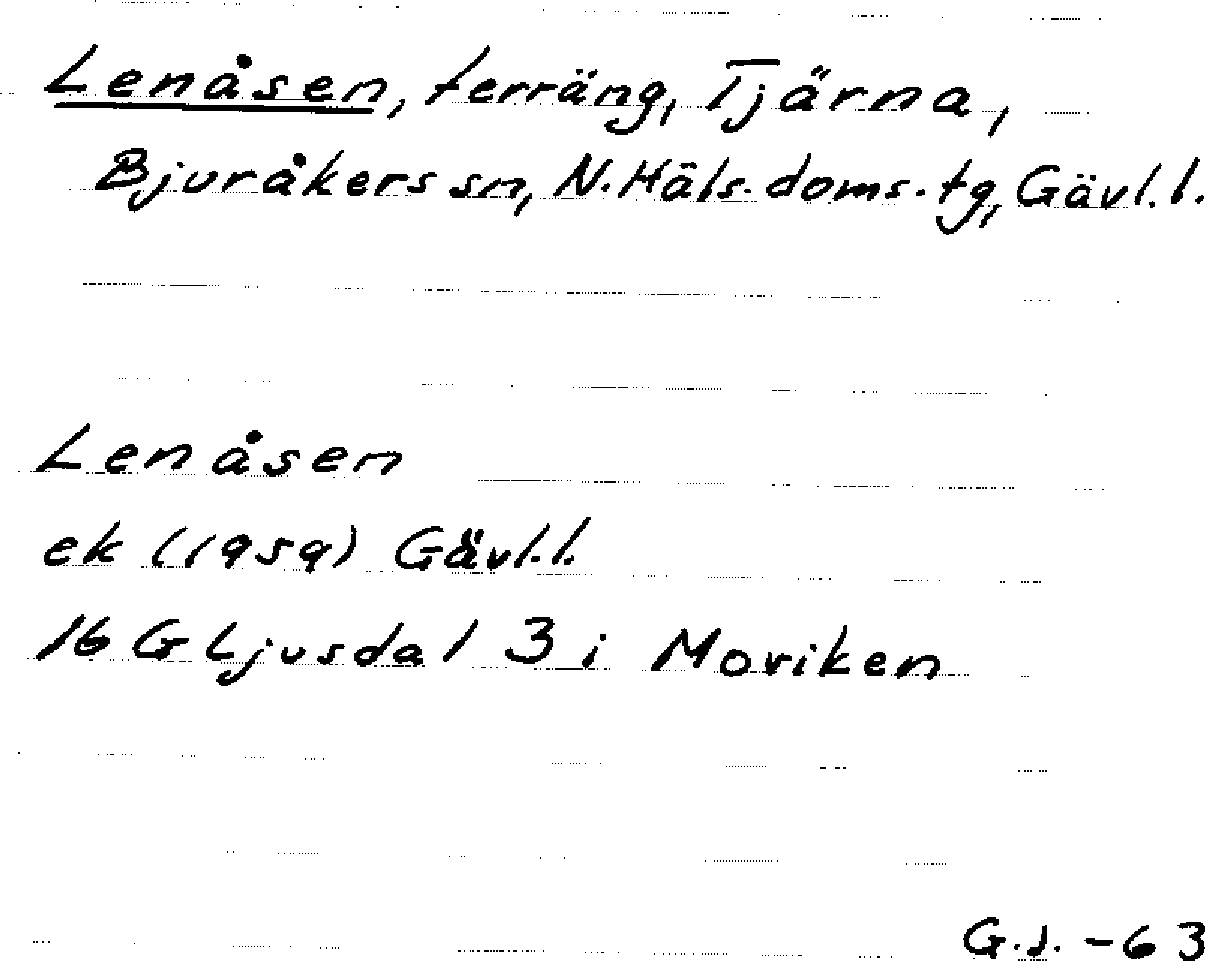 Lenåsen, terräng, Tjärna,
Bjuråkers sn, N. Häls. doms. tg, Gävl. l.
Lenåsen
ek (1959) Gävl. l.
16 G Ljusdal 3 i Moviken
G.J. -63